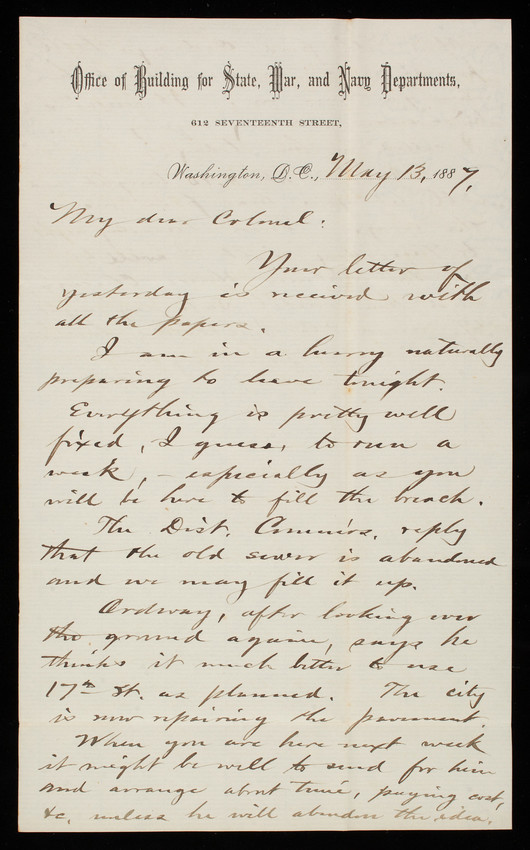 Office of Building for State, War, and Navy Departments,
612 SEVENTEENTH STREET,
Washington, D.C., May 13, 1887,
My dear Colonel:
Your letter of
yesterday is received with
all the papers.
I am in a hurry naturally
preparing to leave tonight.
Everything is pretty well
fixed, I guess, to run a
week, – especially as you
will be here to fill the breach.
The Dist. Commrs. reply
that the old sewer is abandoned
and we may fill it up.
Ordway, after looking over
the ground again, says he
thinks it much better to use
17th St. as planned. The city
is now repairing the pavement.
When you are here next week
it might be well to send for him
and arrange abt time, paying cost,
&c. unless he will abandon the idea.